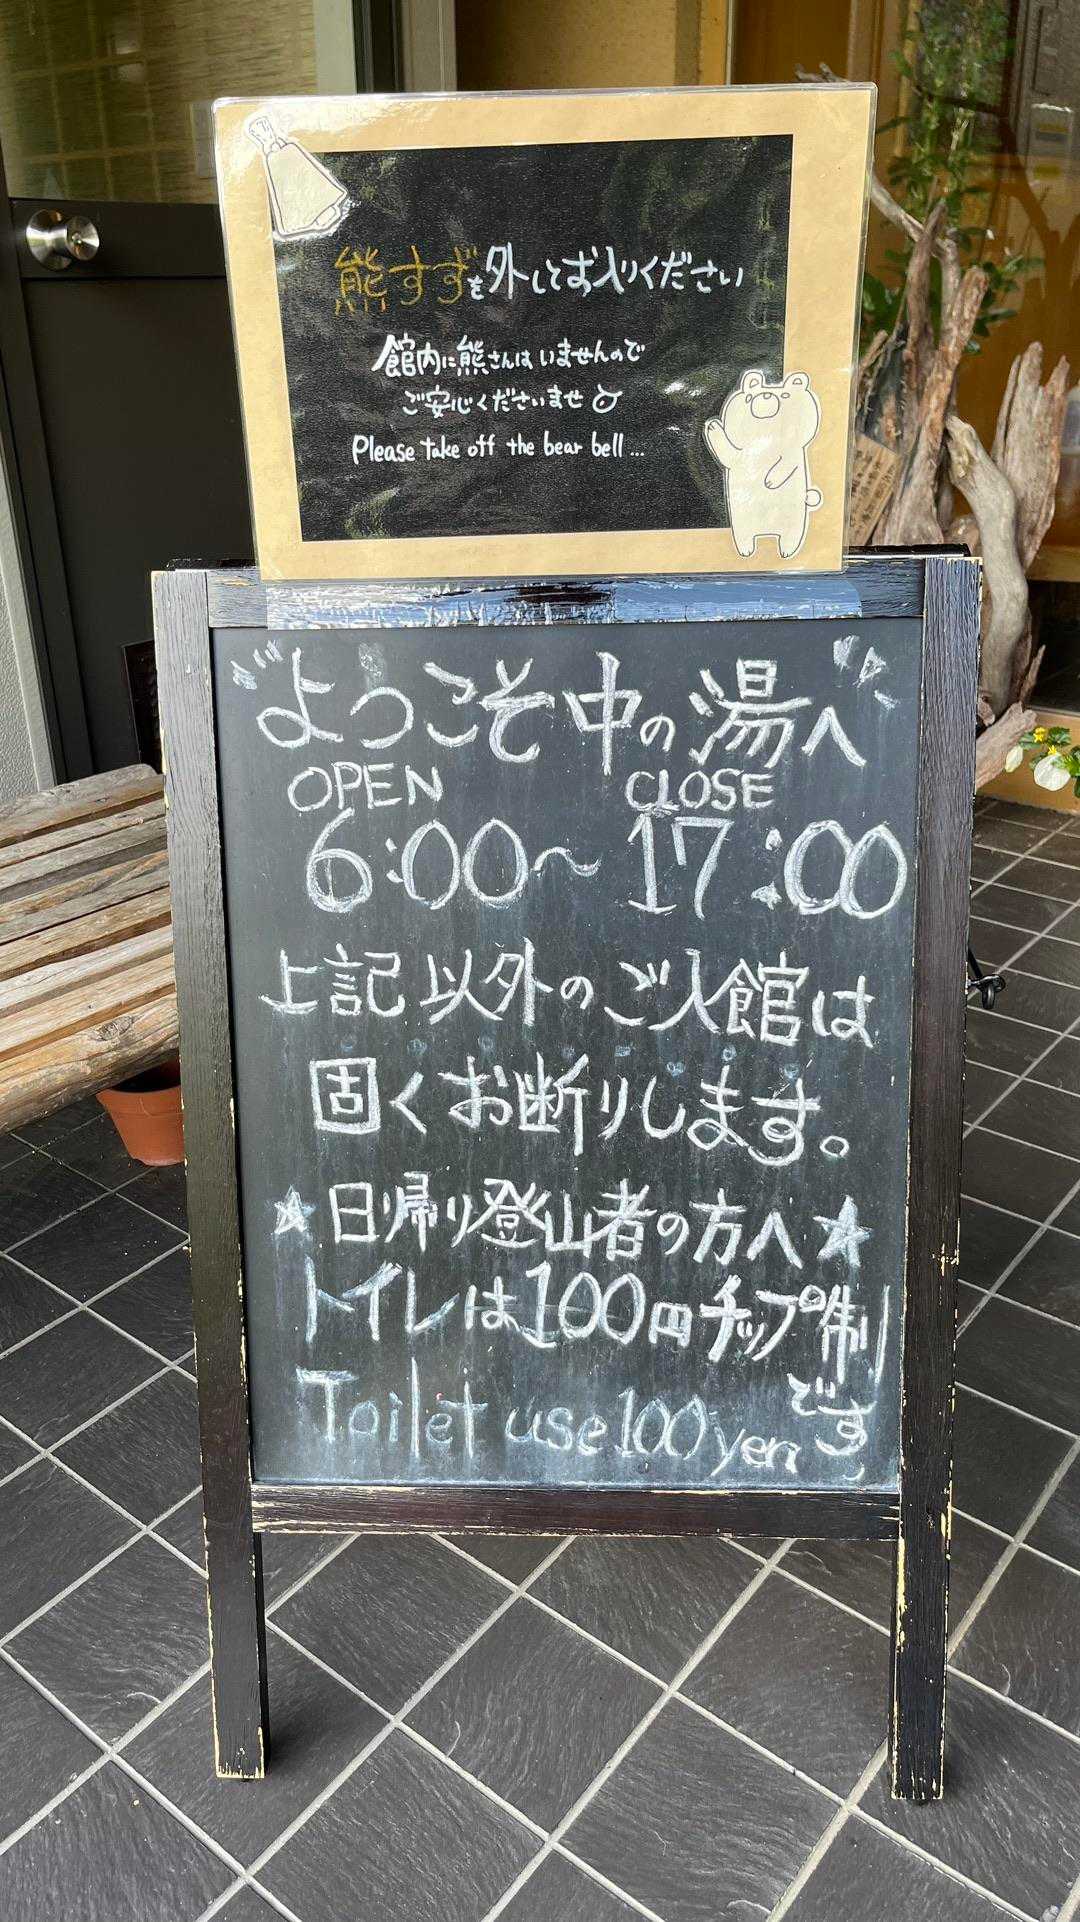 熊すずを外してお入りください
館内に熊さんはいませんので
ご安心くださいませ
Please take off the bear bell...
"ようこそ中の湯へ"
OPEN CLOSE
6:00〜17:00
上記以外のご入館は
固くお断りします。
★日帰り登山者の方へ★
トイレは100円チップ制
です
Toilet use 100yen